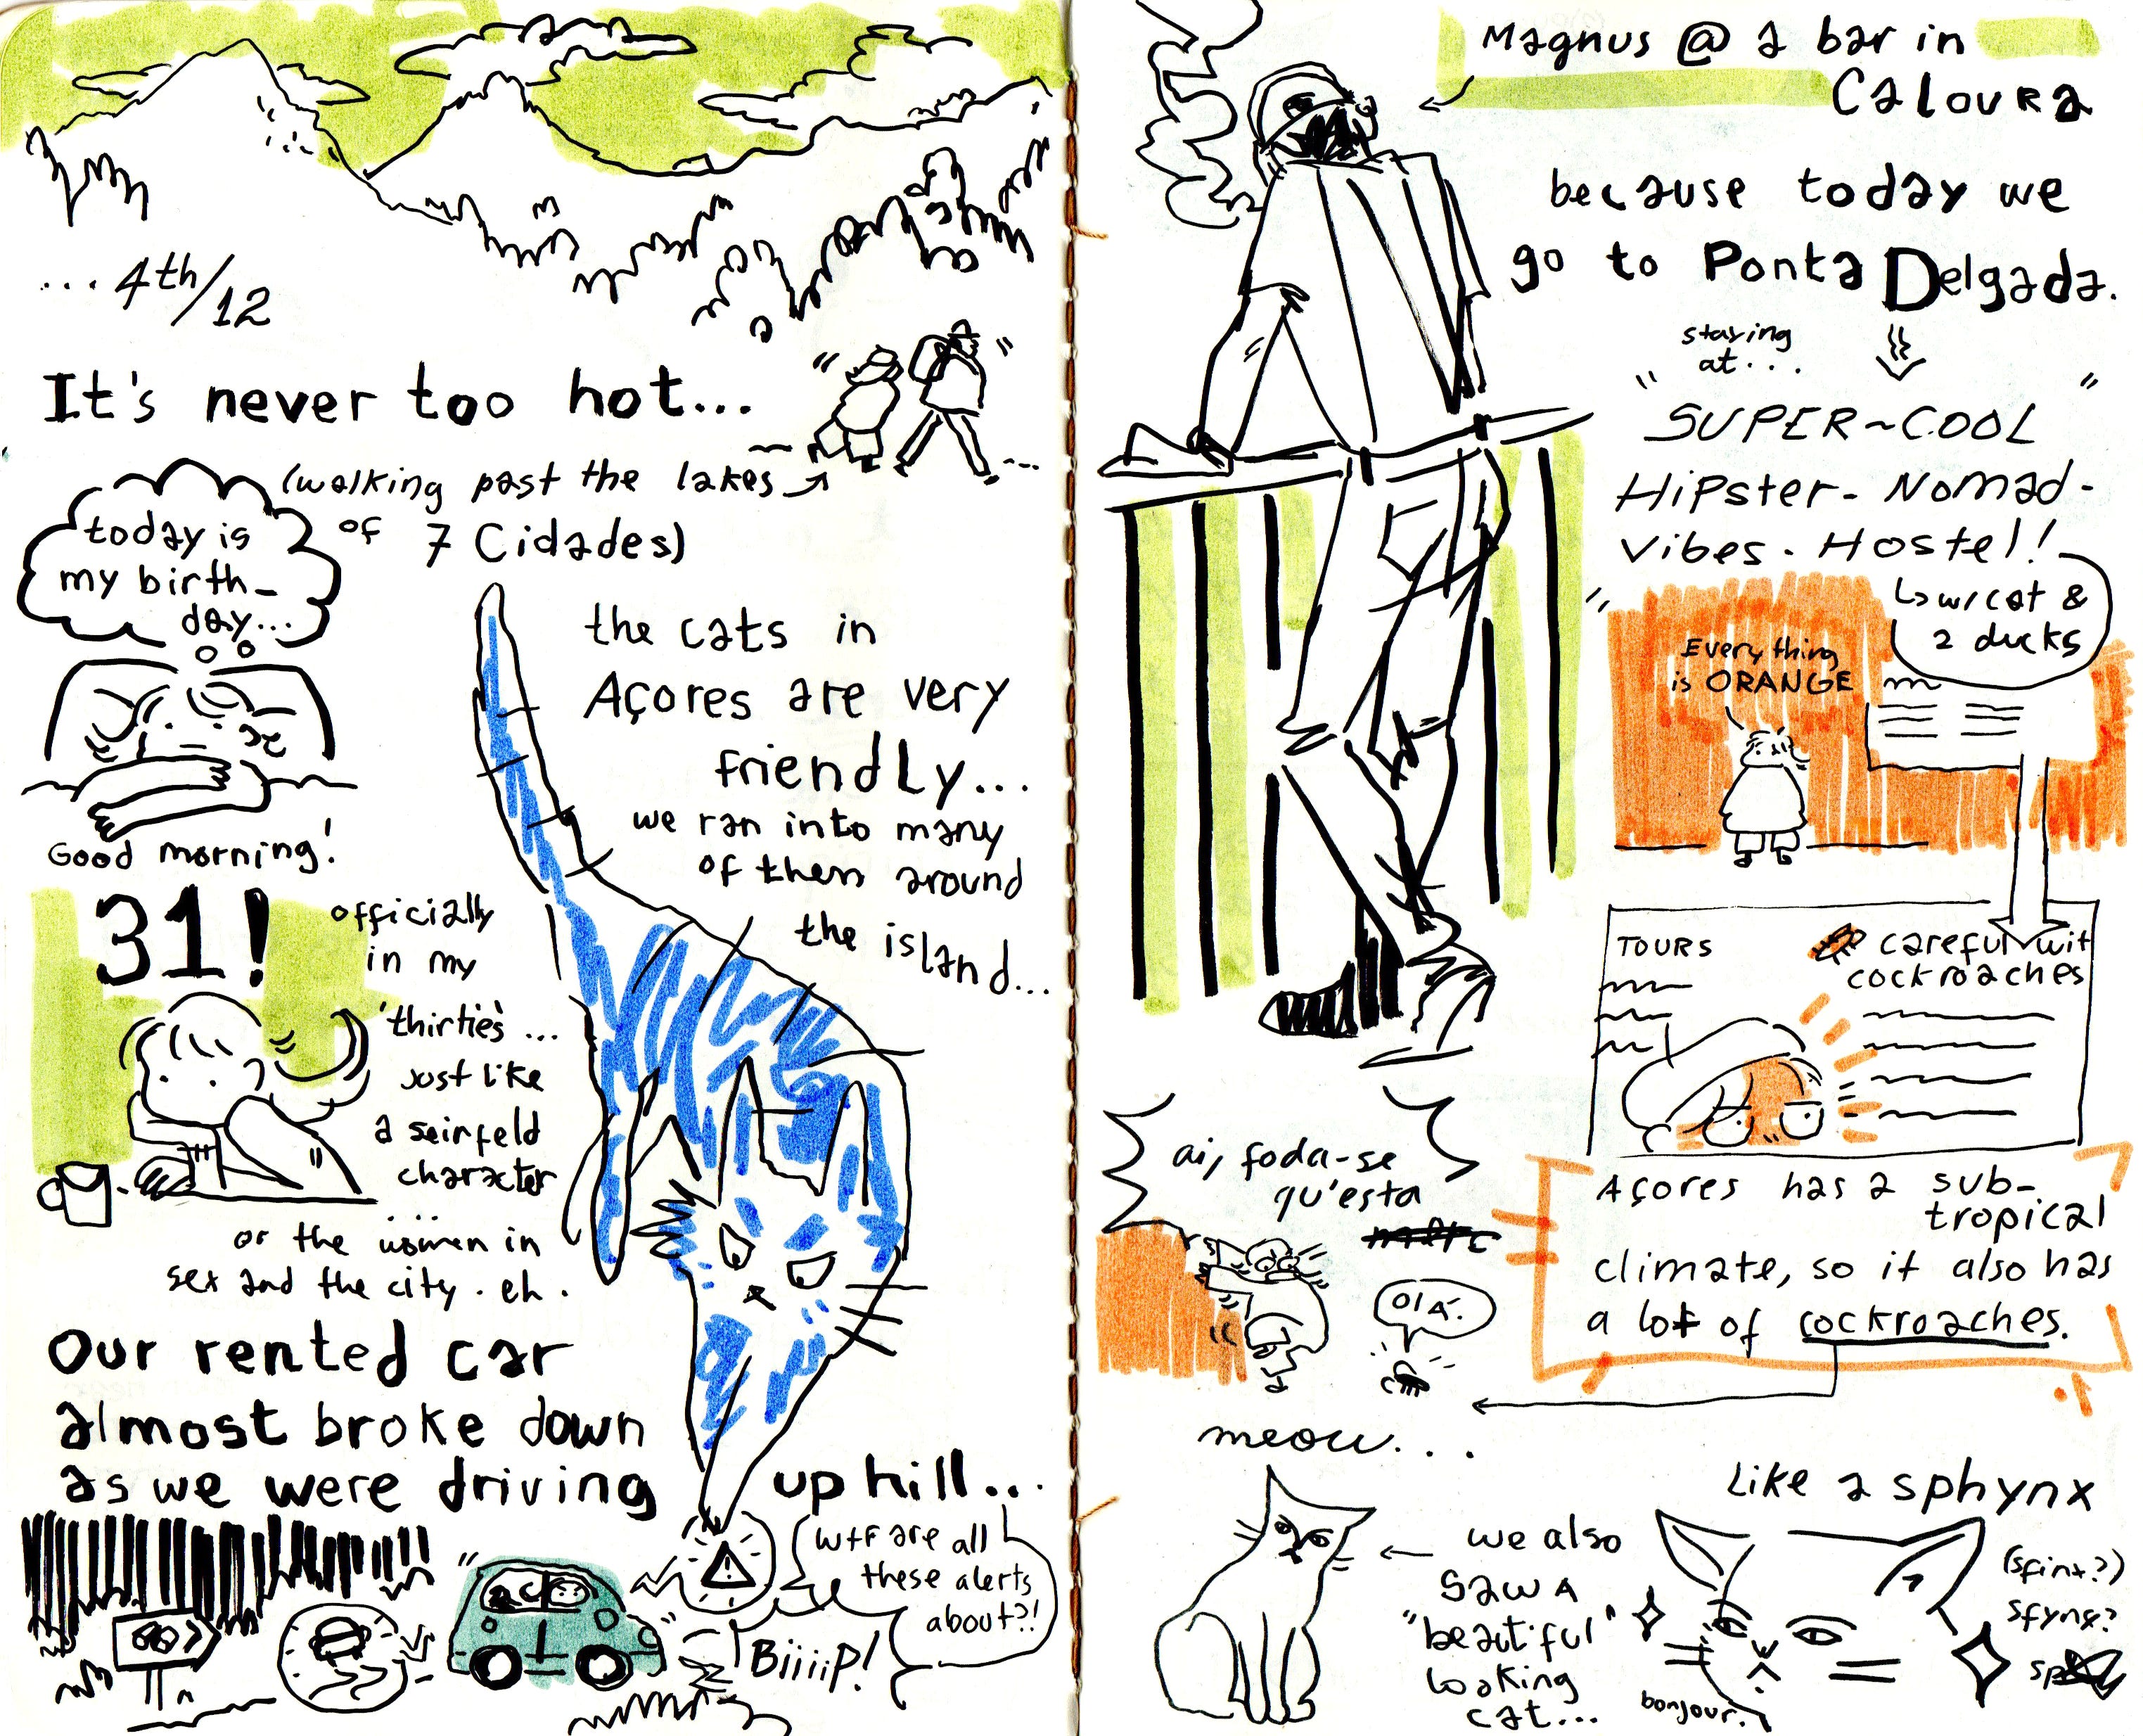 ... 4th/12
It's never too hot...
(walking past the lakes
of 7 Cidades)
today is
my birth-
day...
Good morning!
31!
officially
in my
'thirties'...
just like
a seinfeld
character
...
or the women in
sex and the city. eh.
the cats in
Açores are very
friendly...
we ran into many
of them around
the island...
Our rented car
almost broke down
as we were driving
up hill...
wtf are all
these alerts
about?!
Biiiip!
Magnus @ a bar in
Caloura
because today we
go to Ponta Delgada.
staying
at...
"SUPER~COOL
Hipster-Nomad-
Vibes-Hostel!"
↳ w/cat &
2 ducks
Everything
is ORANGE
TOURS
careful wit
cockroaches
Açores has a sub-
tropical
climate, so it also has
a lot of cockroaches.
ai, foda-se
qu'esta
Olá.
meow...
we also
saw a
"beautiful"
looking
cat...
Like a sphynx
(sfinx?)
sfynx?
bonjour.